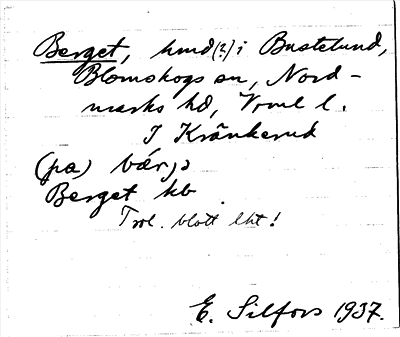 Berget, hmd (?) i Bustelund,
Blomskogs sn, Nord-
marks hd, Vrml l.
I Kränkerud
(pa) bær,ə
Berget kb
Trol. blott lht!
E. Silfors 1937.